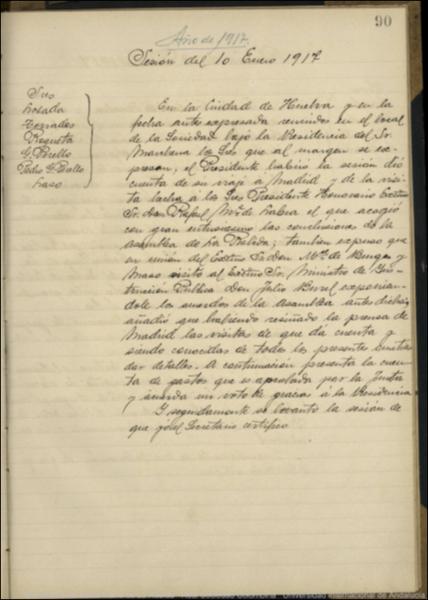 90
Año de 1917.
Sesión del 10 Enero 1917
Sres
Losada
Terrades
Requeta
G. Brello
Pedro G. Brello
Laso
En la Ciudad de Huelva y en la
fecha ante expresada reunidos en el local
de la Sociedad bajo la Presidencia del Sr.
Marchena los Sres que al margen se ex-
presan, el Presidente habrió la sesión dió
cuenta de su viaje a Madrid y de la visi-
ta hecha á los Sres Presidente Honorario Exctmo
Sr. Don Rafael Mª de Labra el que acogió
con gran entusiasmo las conclusiones de la
Asamblea de La Rabida; tambien expuso que
en unión del Exctmo Sr Don Ml. de Burgos y
Mazo visitó al Exctmo Sr. Ministro de Yns-
trucción Publica Don Julio Burel exponien-
dole los acuerdos de la Asamblea antes dicha,
añadió que habiendo reseñado la prensa de
Madrid las visitas de que dá cuenta y
siendo conocidas de todos los presentes omitia
dar detalles. A continuacion presenta la cuen-
ta de gastos que es aprobada por la Junta
y acuerda un voto de gracias á la Presidencia
Y seguidamente se levantó la sesión de
que yo el Secretario certifico
Internacional de Andalucía